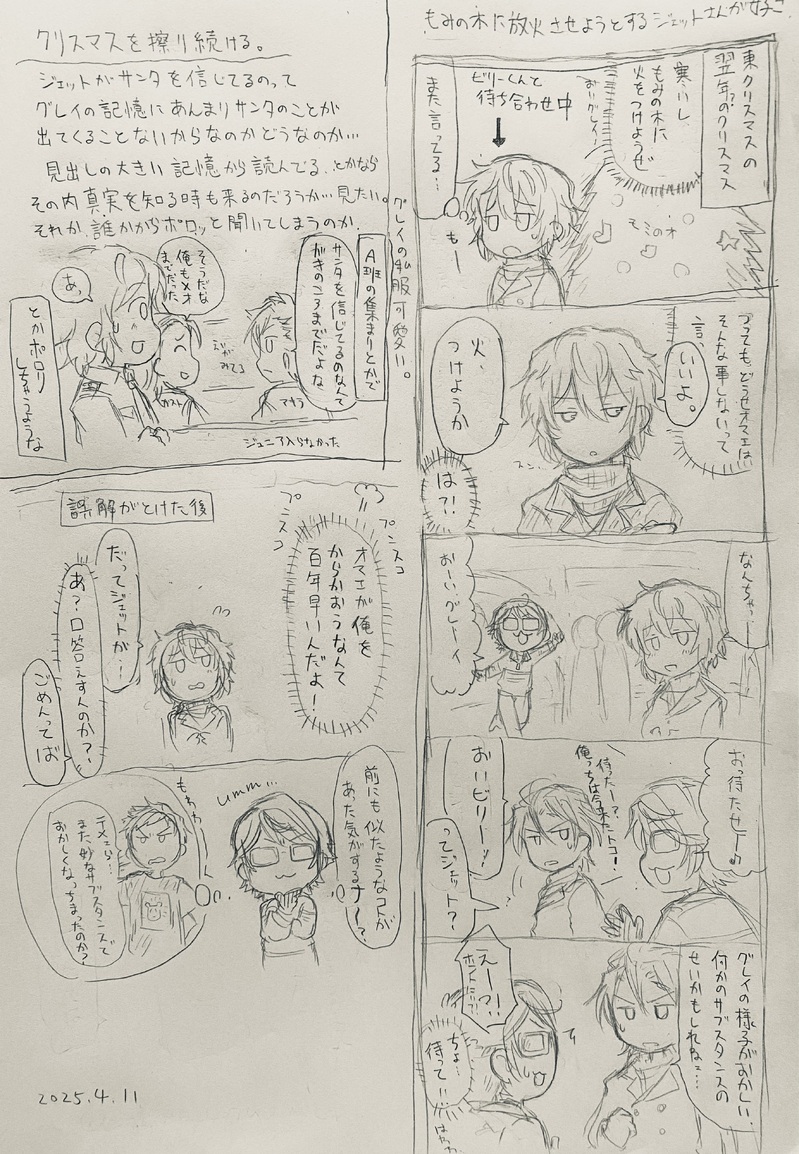 もみの木に放火させようとするジェットさんが好き
東クリスマスの
翌年?のクリスマス
寒いし、
もみの木に
火をつけようぜ
おいグレイ!
ビリーくんと
待ち合わせ中
また言ってる…
もー
モミのオ
つってもどうせオマエは
そんな事しないって
言、
いいよ。
火、
つけようか
スン…
は?!
なんちゃっ―
おーいグレーイ
お待たせー♪
待ったー?
俺っちは今来たトコ!
おいビリーッ!
ってジェット?
グレイの様子がおかしい。
何かのサブスタンスの
せいかもしれねェ…
えーっ!!
ホントに!?
ちょ…
待って!!
クリスマスを擦り続ける。
ジェットがサンタを信じてるのって
グレイの記憶にあんまりサンタのことが
出てくることないからなのかどうなのか…
見出しの大きい記憶から読んでる、とかなら
その内真実を知る時も来るのだろうか…見たい。
それか、誰かからポロッと聞いてしまうのか
グレイの私服可愛い。
A班の集まりとかで
サンタを信じてるのなんて
がきのころまでだよな
そうだな
俺もメオ
までだった
あっ
ガスト
アキラ
ジュニア入らなかった
とかポロリ
しちゃうような
誤解がとけた後
プンスコ
プンスコ
オマエが俺を
からかおうなんて
百年早いんだよ!
だってジェットが…
あ?口答えすんのか?
ごめんってば
前にも似たようなコトが
あった気がするナー?
umm…
もわわ
テメェら…
また妙なサブスタンスで
おかしくなっちまったのか?
2025.4.11